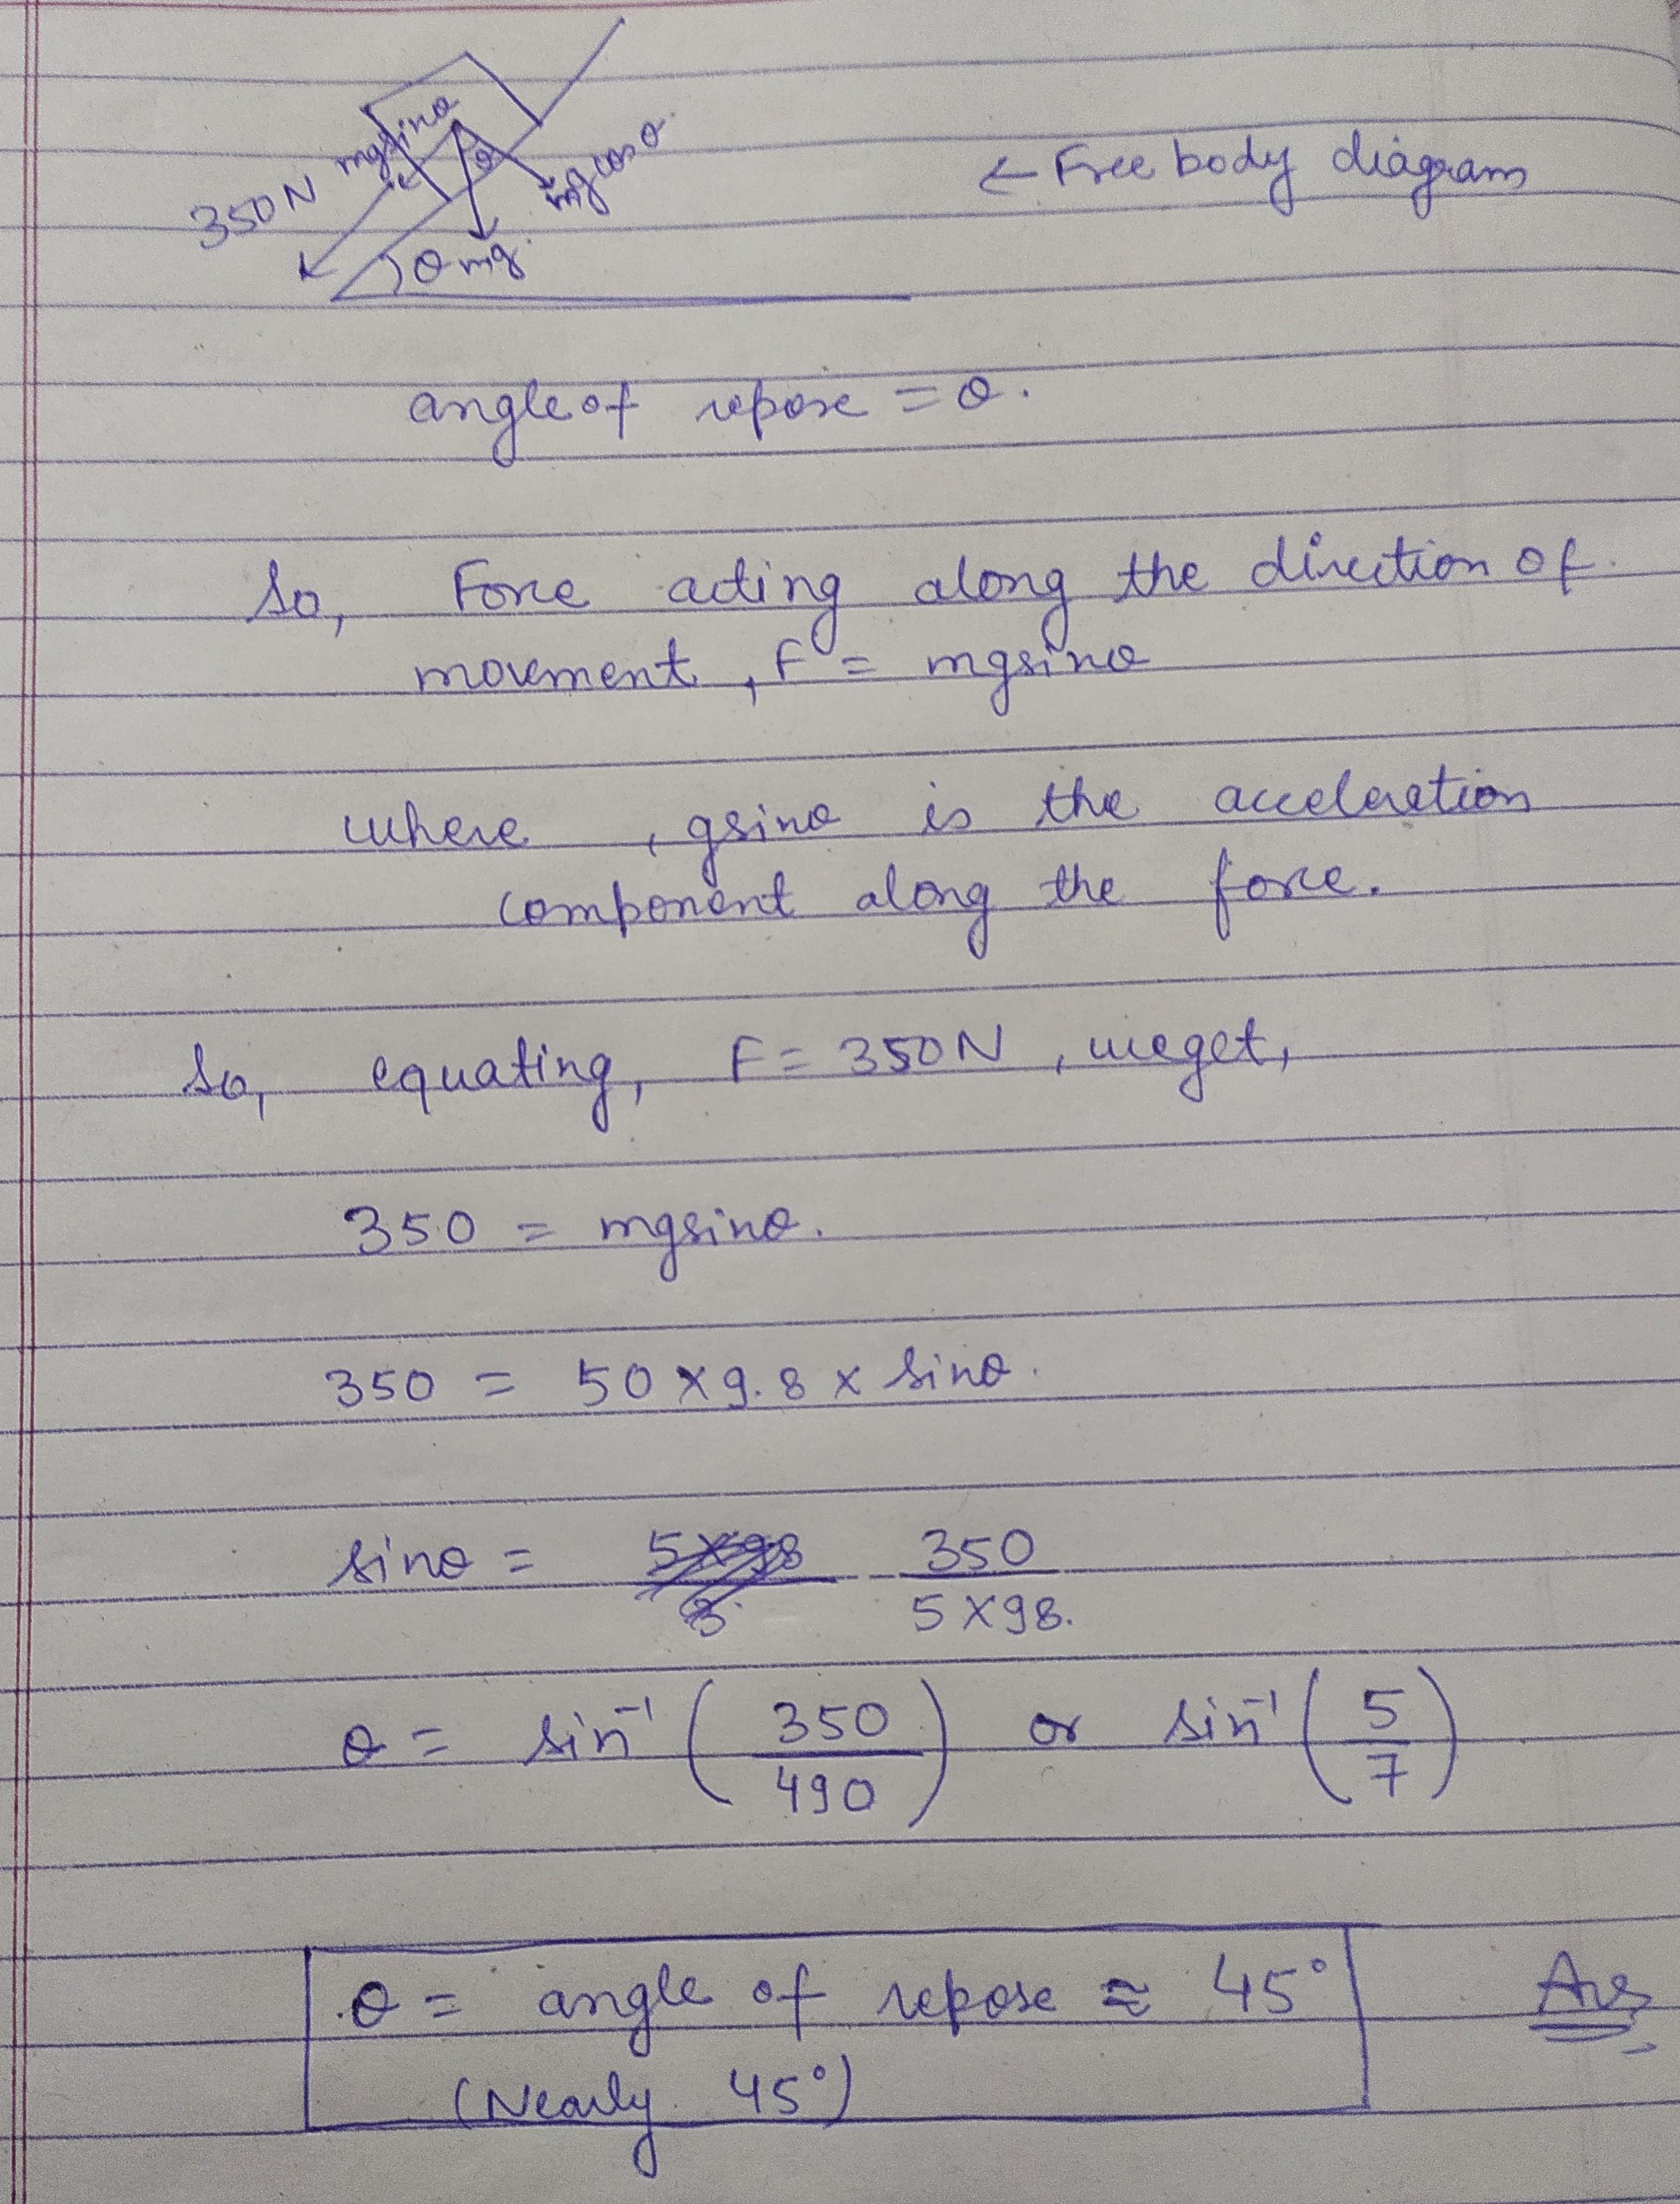 350N mgsinθ θ mgcosθ
θ mg
← Free body diagram
angle of repose = θ.
So, Force acting along the direction of
movement, F = mgsinθ
where, gsinθ is the acceleration
component along the force.
So, equating, F = 350N, we get,
350 = mgsinθ.
350 = 50 × 9.8 × sinθ.
sinθ = 350
5 × 98.
θ = sin⁻¹ (350/490) or sin⁻¹ (5/7)
θ = angle of repose ≈ 45°
(Nearly 45°)
Ans